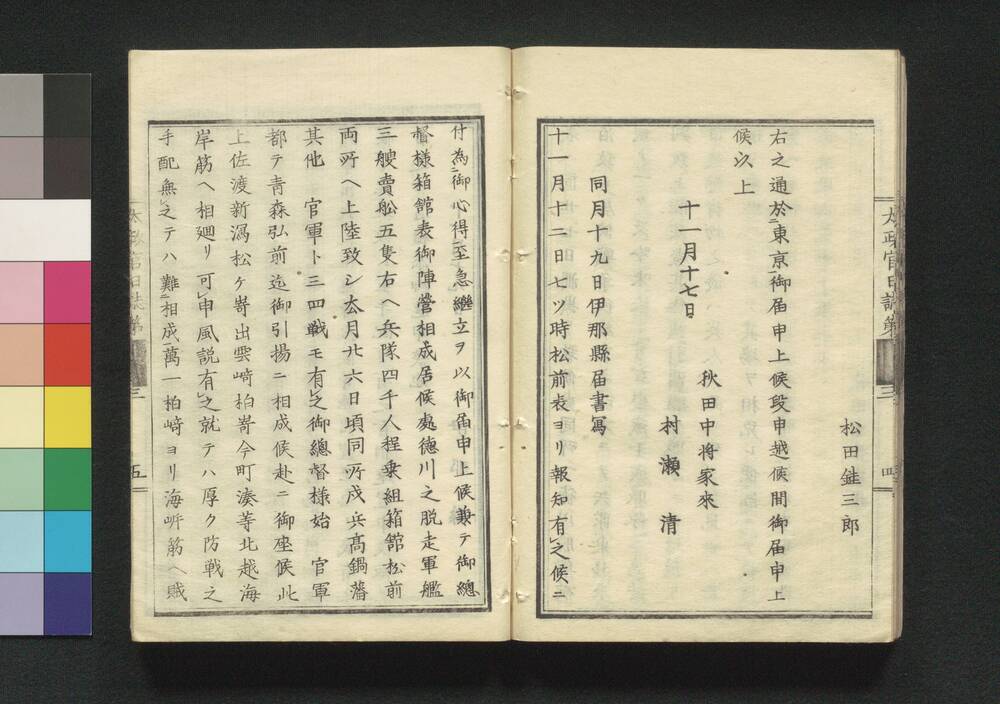 松田銈三郎
右之通於東京御届申上候段申越候間御届申上
候以上
秋田中将家來
十一月十七日
村瀬清
同月十九日伊那縣届書寫
十一月十二日七ツ時松前表ヨリ報知有之候ニ
太政官日誌第
三
四
付為御心得至急繼立ヲ以御届申上候兼テ御總
督様箱館表御陣營相成居候處德川之脱走軍艦
三艘賣舩五隻右ヘ兵隊四千人程乗組箱舘松前
両所ヘ上陸致シ去月廿六日頃同所戍兵高鍋藩
其他 官軍ト三四戦モ有之御總督様始 官軍
都テ青森弘前迄御引揚ニ相成候赴ニ御座候此
上佐渡新潟松ケ嵜出雲﨑柏嵜今町湊等北越海
岸筋ヘ相廻リ可申風説有之就テハ厚ク防戦之
手配無之テハ難相成萬一柏﨑ヨリ海岍筋ヘ賊
太政官日誌第
三
五